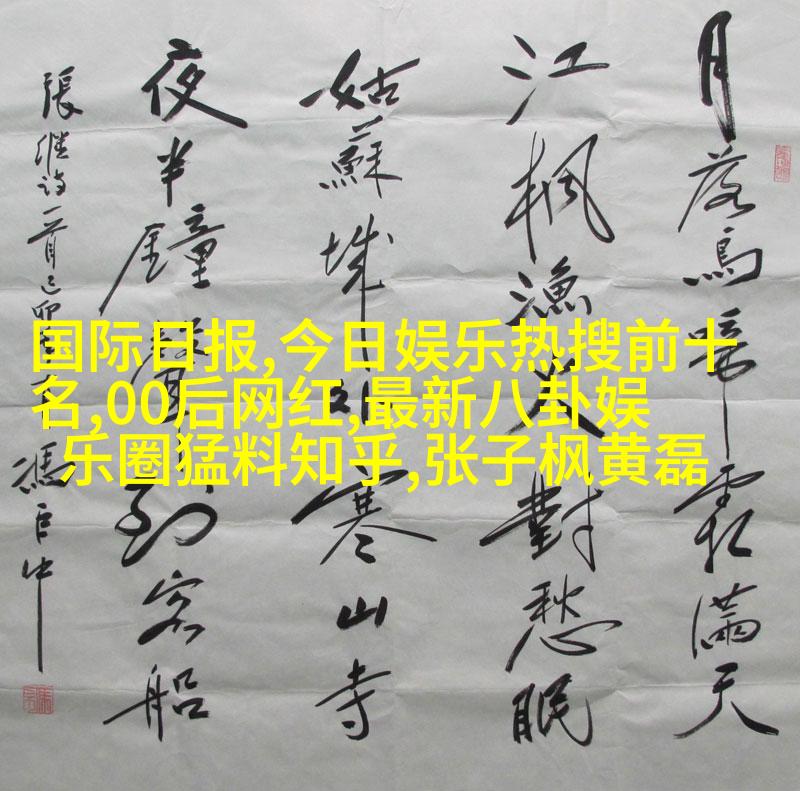 月落烏啼霜滿天
江枫漁火對愁眠
姑蘇城外寒山寺
夜半鐘聲到客船
張继诗一首己卯
国际日报,今日娱乐热搜前十
名,00后网红,最新八卦娱
乐圈猛料知乎,张子枫黄磊